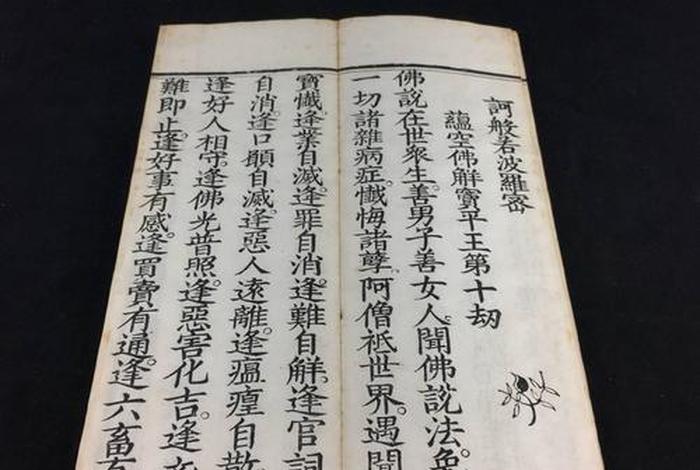 訶般若波羅密
蘊空佛解寶平王第十劫
佛說在世衆生。善男子善女人。聞佛說法。
一切諸雜病症。懺悔諸孽。阿僧祇世界。遇聞
寶懺。逢業自滅。逢罪自消。逢難自解。逢官詞
自消。逢口願自滅。逢惡人遠離。逢瘟瘟自散
逢好人相守。逢佛光普照。逢惡害化吉。逢
難即止。逢好事有感。逢買賣有通。逢六畜